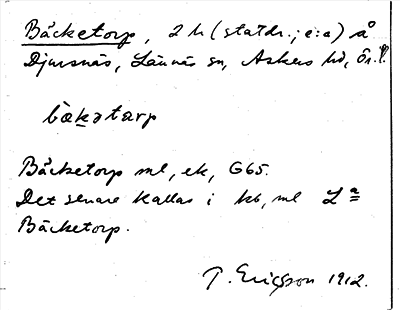 Bäcketorp, 2 h (statdr.; e:a) å
Djursnäs, Lännäs sn, Askers hd, Ör. l.
bäkətarp
Bäcketorp ml, ek, G65.
Det senare kallas i kb, ml La
Bäcketorp.
T. Ericsson 1912.